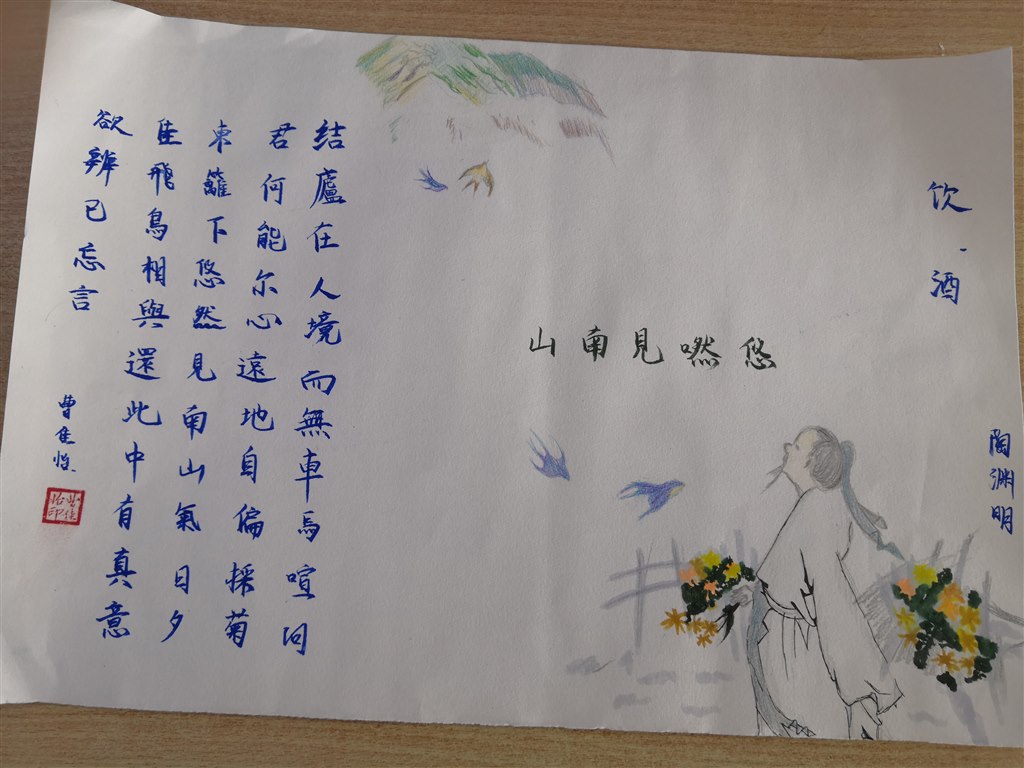 饮、酒
陶渊明
悠嘫見南山
结廬在人境而無車馬喧问
君何能尔心遠地自偏採菊
東籬下悠然見南山氣日夕
佳飛鳥相與還此中有真意
欲辨已忘言
曹佳怡
曹佳怡印